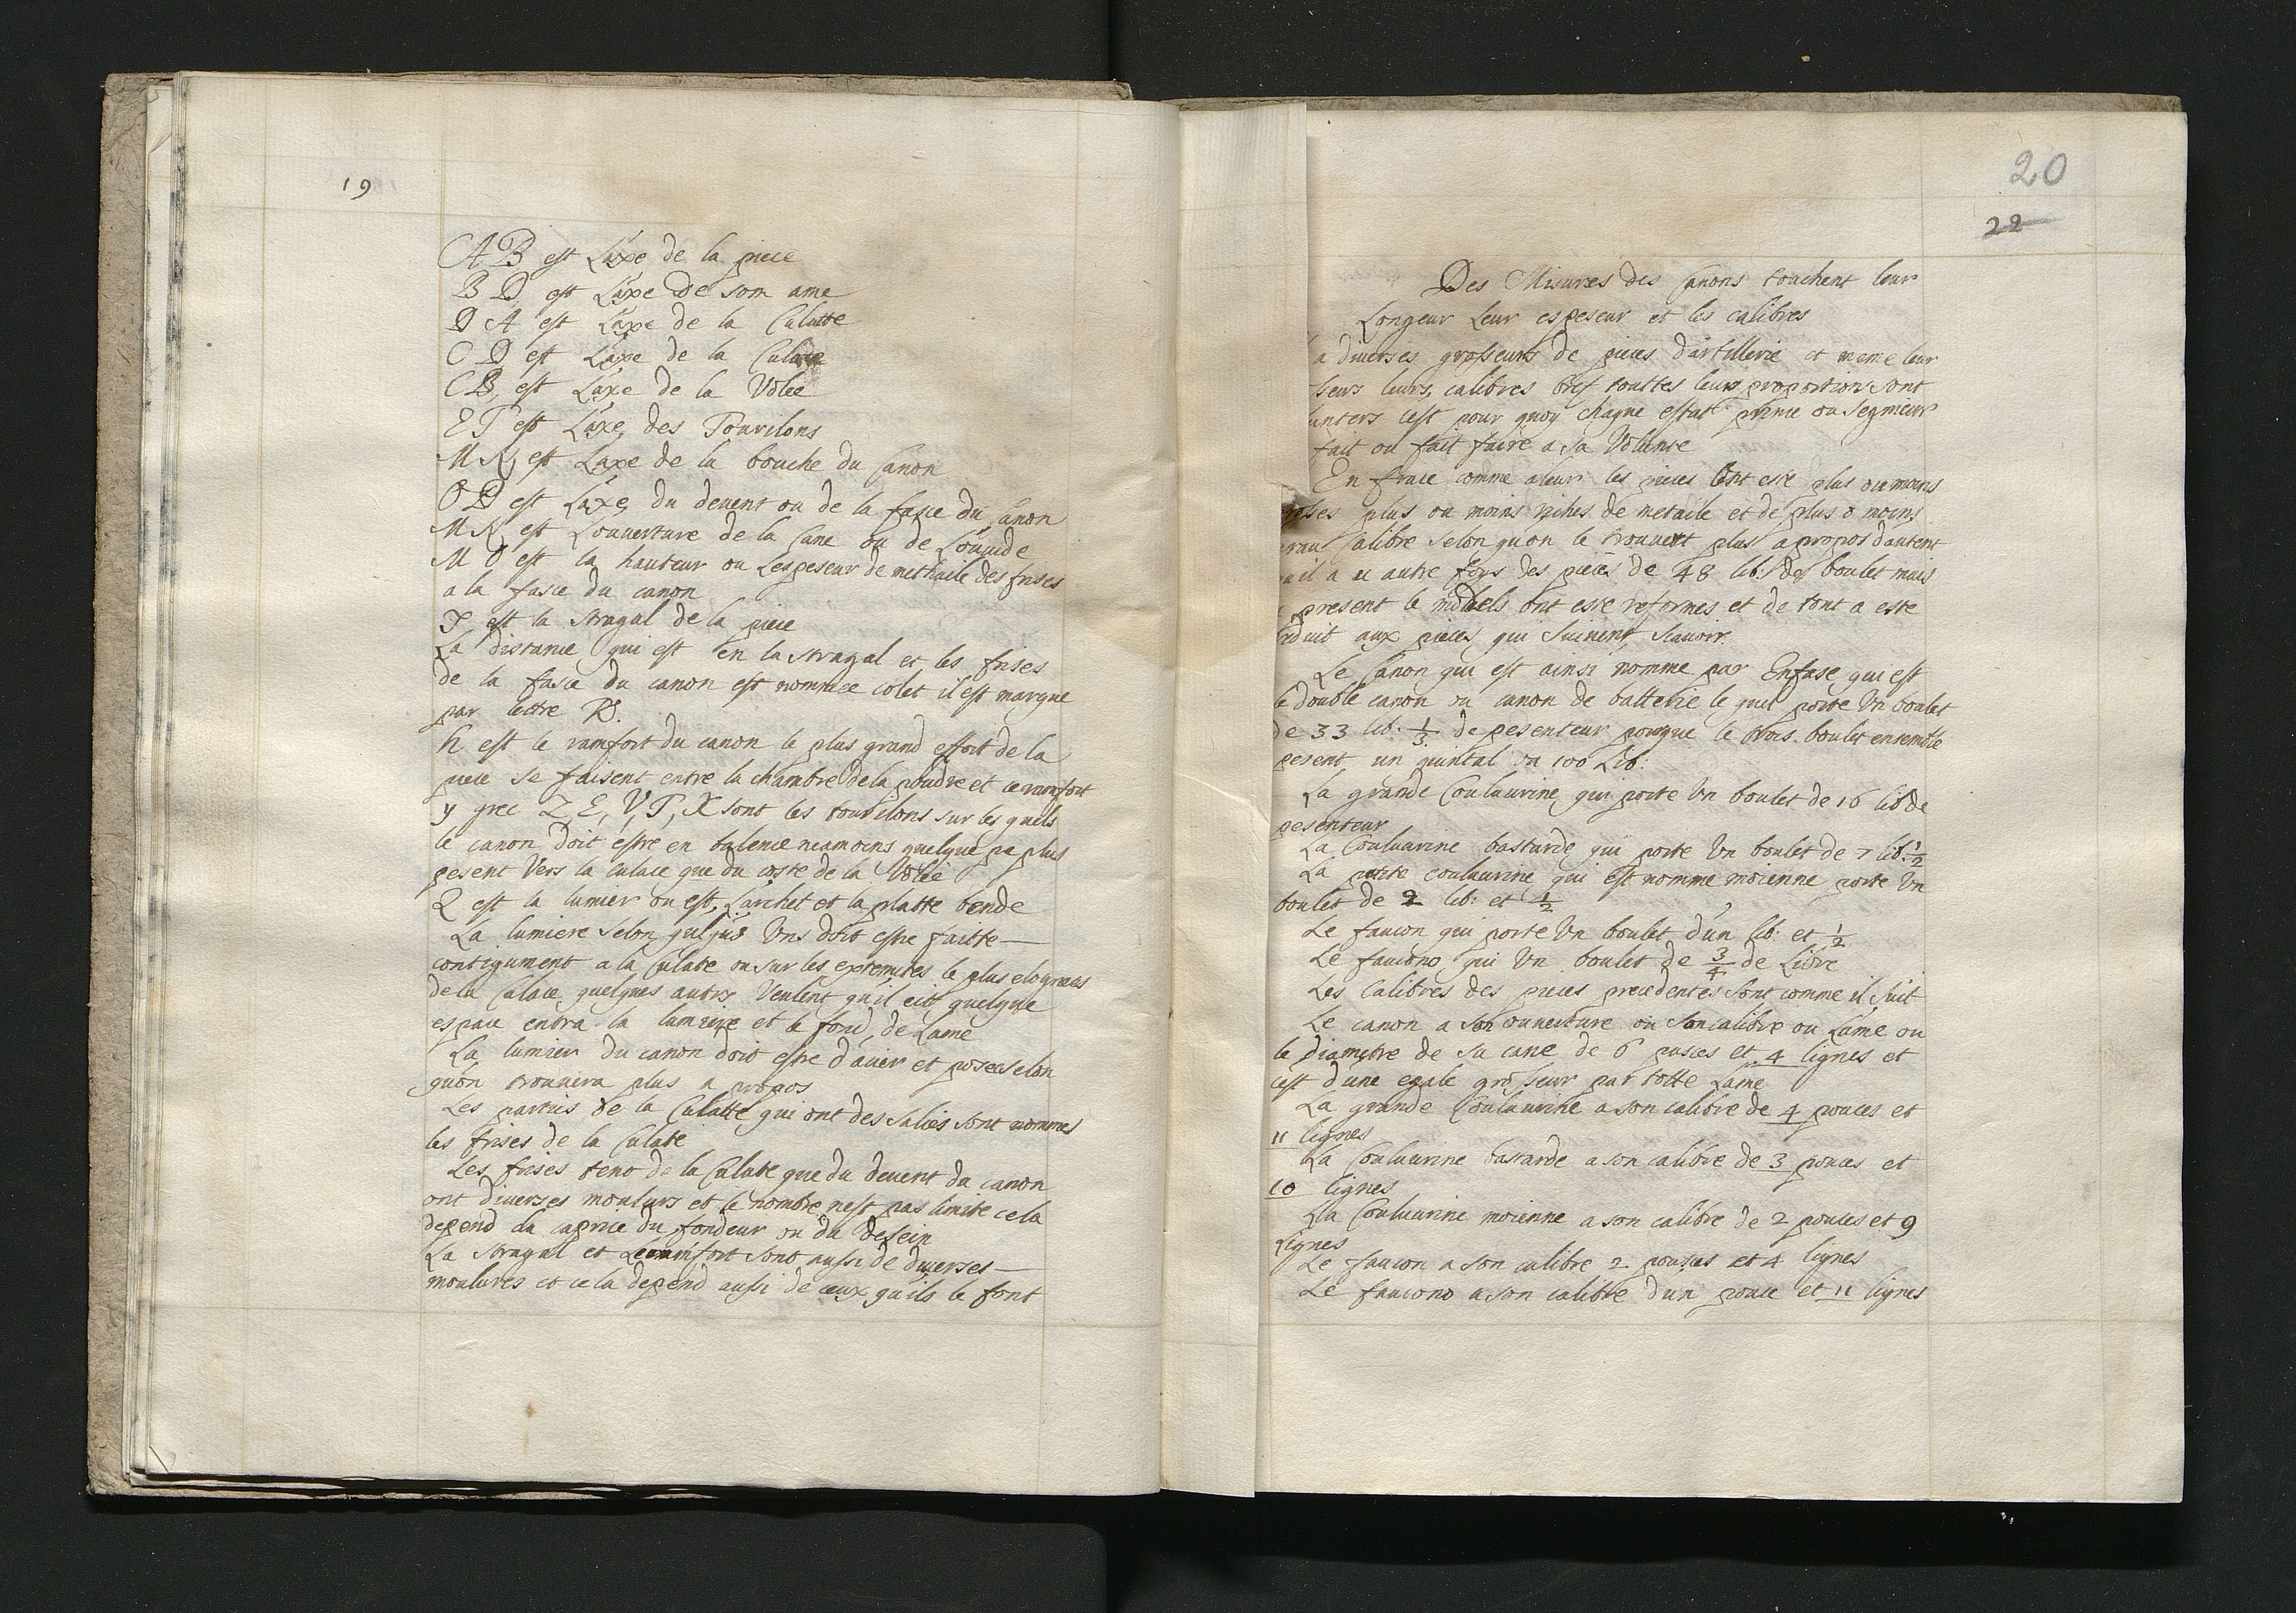 19
AB est L'axe de la piece
BD, est L'axe de som ame
DA est L'axe de la Culatte
CD est L'axe de la Culace
CB, est L'axe de la Volee
ET est L'axe, des Tourilons
MN, est L'axe de la bouche du Canon
OD est L'axe, du devent ou de la fasce du Canon
MN, est L'ouverture de la Cane ou de Louuide
MO est la hauteur ou Lespeseur de methaile des frises
a la fasce du canon
est la stragal de la piece
La distance qui est en la stragal et les frises
de la fasce du canon est nommee colet il est marque
par lettre
h est le ramfort du canon le plus grand effort de la
piece se faisent entre la chambre de la poudre et ce ramfort
y grec Z, E, V, T, X sont les tourilons sur les quels
le canon doit estre en balence neamoins quelque pa plus
pesent Vers la culace que du coste de la Volee
Q est la lumier ou est, L'archet et la platte bende
La lumiere selon Uns doit estre faitte
contigument a la Culate ou sur les extremites le plus elognees
de la Culace, quelques autrs Veulent qu'il eit quelque
espace entra la lumiere et le fond, de Lame
La lumier du canon doit estre d'acier et posee selon
qu'on trouuera plus a propos
Les parties de la Culatte qui ont des salies sont nommes
les frises de la Culate
Les frises tent de la Culate que du devent du canon
ont diverses moulurs et le nombre n'est pas limite cela
depend da caprice du fondeur ou du desein
La stragal et Leramfort sont aussi de diverses
moulures et cela depend aussi de ceux qu'ils le font
20
22
Des Misures des Canons touchent leur
Longeur Leur espeseur et les calibres
a diverses grosseurs de pieces d'artillerie et meme leur
leurs, calibres bref touttes leurs proportions sont
cest pour quoy chaque estat prince ou segnieur
fait ou fait faire a sa Volunte
En france comme aleur les pieces ont este plus ou moins
plus ou moins riches de metaile et de plus o moins
Calibre selon qu'on le trouvent plus a propos d'autent
il a u autre foys des pieces de 48 lib: de boulet mais
present le modeels ont este reformes et de tout a este
aux pieces, qui suiuent, scauoir
Le Canon qui est ainsi nomme par Enfase, qui est
le double canon ou canon de batterie le quel porte Un boulet
de 33 lib: 1/3 de pesenteur pourque le trois boulet ensemble
pesent, un quintal ou 100 Lib:
La grande Couluurine, qui porte Un boulet de 16 lib de
pesenteur
La Couluurine bastarde qui porte Un boulet de 7 lib: 1/2
La petite couluurine qui est nomme moienne porte Un
boulet de 2 lib: et 1/2
Le faucon qui porte Un boulet d'un lib: et 1/2
Le faucono qui Un boulet de 3/4 de Libre
Les Calibres des pieces precedentes sont comme il suit
Le canon a son ouverture ou son calibre ou L'ame ou
le diametre de sa cane de 6 puses et 4 lignes et
cest d'une egale grosseur par totte Lame
La grande Couluurine a son calibre de 4 pouces et
11 lignes
La Couluurine bastarde a son calibre de 3 pouces et
10 lignes
La Couluurine moienne a son calibre de 2 pouces et 9
Lignes
Le faucon a son calibre 2 pouses et 4 lignes
Le faucono a son calibre d'un pouce et 11 lignes